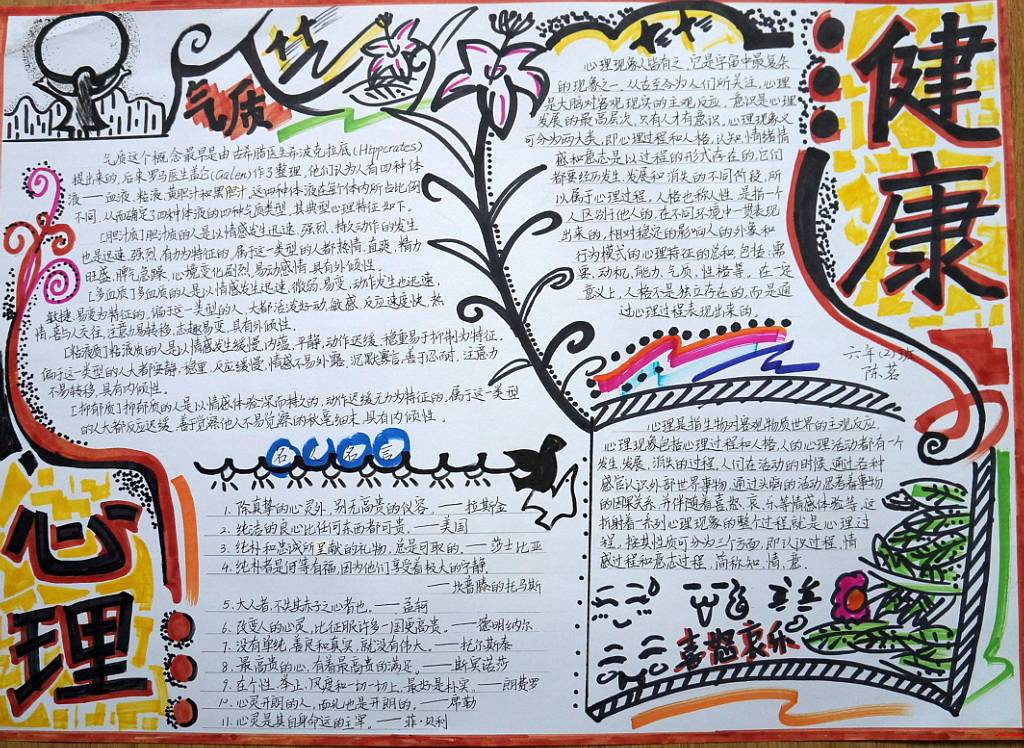 气质
气质这个概念最早是由古希腊医生希波克拉底(Hippcrates)
提出来的,后来罗马医生盖伦(Galen)作了整理,他们认为人有四种体
液——血液、粘液、黄胆汁和黑胆汁。这四种体液在每个体内所占比例
不同,从而确定了四种体液的四种气质类型,其典型心理特征如下。
[胆汁质]胆汁质的人是以情感发生迅速、强烈、持久动作的发生
也是迅速、强烈、有力为特征的,属于这一类型的人都热情,直爽,精力
旺盛,脾气急躁,心境变化剧烈,易动感情,具有外倾性。
[多血质]多血质的人是以情感发生迅速、微弱、易变,动作发生也迅速、
敏捷、易变为特征的,偏于这一类型的人,大都活泼好动,敏感,反应速度快,热
情,喜与人交往,注意力易转移,志趣易变,具有外倾性。
[粘液质]粘液质的人是以情感发生缓慢、内蕴、平静,动作迟缓、稳重易于抑制为特征,
偏于这一类型的人大都安静,稳重,反应缓慢,情感不易外露,沉默寡言,善于忍耐,注意力
不易转移,具有内倾性。
[抑郁质]抑郁质的人是以情感体验深而持久的,动作迟缓无力为特征的,属于这一类型
的人大都反应迟缓,善于觉察他人不易觉察的秋毫细末,具有内倾性。
名人名言
1. 除真挚的心灵外,别无高贵的仪容。——拉斯金
2. 纯洁的良心比任何东西都可贵。——美国
3. 纯朴和忠诚所呈献的礼物,总是可取的。——莎士比亚
4. 纯朴者是何等有福,因为他们享受着极大的宁静。
——坎普滕的托马斯
5. 大人者,不失其赤子之心者也。——孟轲
6. 改变人的心灵,比征服许多一国更高贵。——德谟纳尔
7. 没有单纯、善良和真实,就没有伟大。——托尔斯泰
8. 最高贵的心,有着最高贵的满足。——斯宾诺莎
9. 在个性、举止、风度和一切一切上,最好是朴实。——朗费罗
10. 心灵开朗的人,面孔也是开朗的。——席勒
11. 心灵是其自身命运的主宰。——菲·贝利
心理
健康
心理现象人皆有之,它是宇宙中最复杂
的现象之一,从古至今为人们所关注,心理
是大脑对客观现实的主观反应,意识是心理
发展的最高层次,只有人才有意识,心理现象又
可分为两大类,即心理过程和人格,认知、情绪情
感和意志是以过程的形式存在的,它们
都要经历发生、发展和消失的不同阶段,所
以属于心理过程,人格也称人性,是指一个
人区别于他人的,在不同环境中一贯表现
出来的,相对稳定的影响人的外象和
行为模式的心理特征的总和,包括:需
要、动机、能力、气质、性格等。在一定
意义上,人格不是独立存在的,而是通
过心理过程表现出来的。
六年(2)班
陈茗
心理是指生物对客观物质世界的主观反应,
心理现象包括心理过程和人格,人的心理活动都有一个
发生、发展、消失的过程,人们在活动的时候,通过各种
感官认识外部世界事物,通过头脑的活动思考着事物
的因果关系,并伴随着喜、怒、哀、乐等情感体验等,这
折射着一系列心理现象的整个过程就是心理过
程,按其性质可分为三个方面,即认识过程,情
感过程和意志过程,简称知、情、意。
喜怒哀乐